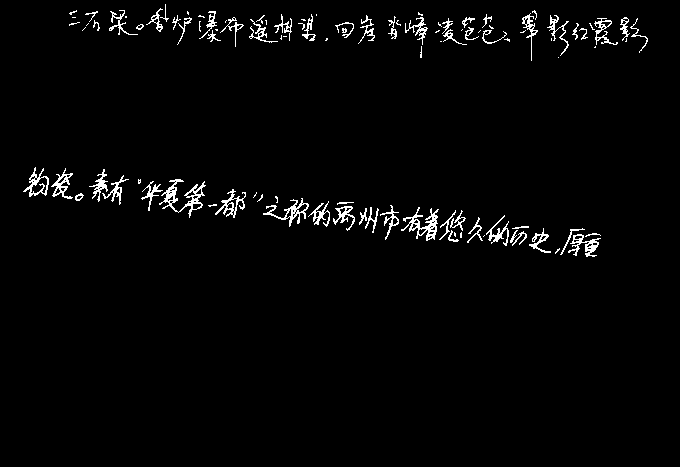 三石梁。香炉瀑布遥相望,回崖沓嶂凌苍苍。翠影红霞影
钧瓷。素有“华夏第一都”之称的禹州市有着悠久的历史,厚重